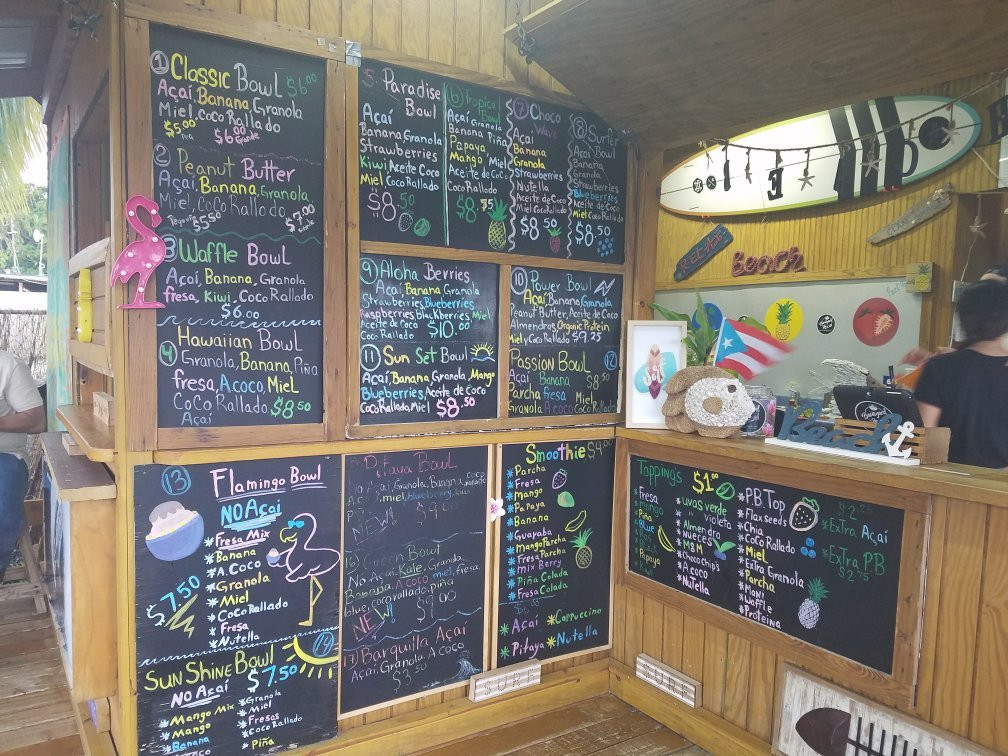 ① Classic Bowl $6.00
Açaí, Banana, Granola
Miel, Coco Rallado
$5.00 $6.00
Grande
② Peanut Butter
Açaí, Banana, Granola,
Miel, Coco Rallado
Pequeño $5.50 $7.00
③ Waffle Bowl
Açaí, Banana, Granola
fresa, Kiwi, Coco Rallado
$6.00
Hawaiian Bowl
④ Granola, Banana, Piña
fresa, A.coco, Miel
Coco Rallado $8.50
Açaí
5 Paradise
Bowl
Açaí
Banana Granola
Strawberries
Kiwi, Aceite Coco
Miel Coco Rallado
$8.50
⑥ Tropical
Bowl
Açaí Granola
Banana, Piña
Papaya
Mango, Miel
Aceite de Coco
Coco Rallado
$8.75
⑦ Choco
Wave
Açaí
Banana
Granola
Strawberries
Nutella
Aceite de Coco
Miel Coco Rallado
$8.50
⑧ Surfer
Açaí Bowl
Banana
Granola
Strawberries
Blueberries
Aceite de Coco
Miel Coco Rallado
$8.50
⑨ Aloha Berries
Açaí, Banana, Granola
Strawberries, Blueberries
Raspberries Blackberries, Miel
Aceite de Coco
Coco Rallado $10.00
⑪ Sun Set Bowl
Açaí, Banana, Granola, Mango
Blueberries, Aceite de Coco
Coco Rallado, Miel $8.50
⑩ Power Bowl
Açaí, Banana, Granola,
Peanut Butter, Aceite de Coco
Almendras, Organic Protein
Miel y Coco Rallado $9.25
Passion Bowl ⑫
Açaí Banana $8.50
Parcha Fresa Miel
Granola A.coco Coco Rallado
⑬ Flamingo Bowl
NO Açaí
*Fresa Mix
*Banana
*A.Coco
*Granola
*Miel
*Coco Rallado
*Fresa
*Nutella
$7.50
⑭
Sun Shine Bowl
NO Açaí $7.50
*Mango Mix
*Mango
*Banana
*Granola
*Miel
*Fresas
*Coco Rallado
*Piña
Pitaya Bowl
Granola, Banana, Coco
miel, blueberry, kiwi
NEW! $9.00
16) Green Bowl
No Açaí, Kale, Granola
Banana, A.coco, miel, fresa,
blue, coco rallado, piña
NEW! $9.00
17) Barquilla Açaí
Açaí, Granola, A.coco
$3.50
Smoothie $4.00
*Parcha
*Fresa
*Mango
*Papaya
*Banana
*Guayaba
*Mango Parcha
*Fresa Parcha
*mix Berry
*Piña Colada
*Fresa Colada
*Açaí *Cappuccino
*Pitaya *Nutella
SURF
Toppings $1.00
*Fresa
*mango
*Piña
*Blue
*Papaya
*uvas verde
" violeta
*Almendra
*Nueces
*M&M
*Chocochips
*A.coco
*Nutella
*P.B. Top
*Flax seeds
*Chia
*Coco Rallado
*Miel
*Extra Granola
*Parcha
*Maní
*Waffle
*Proteina
$2.25
*Extra Açaí
*Extra PB
$2.75
SURF
Beach
Beach